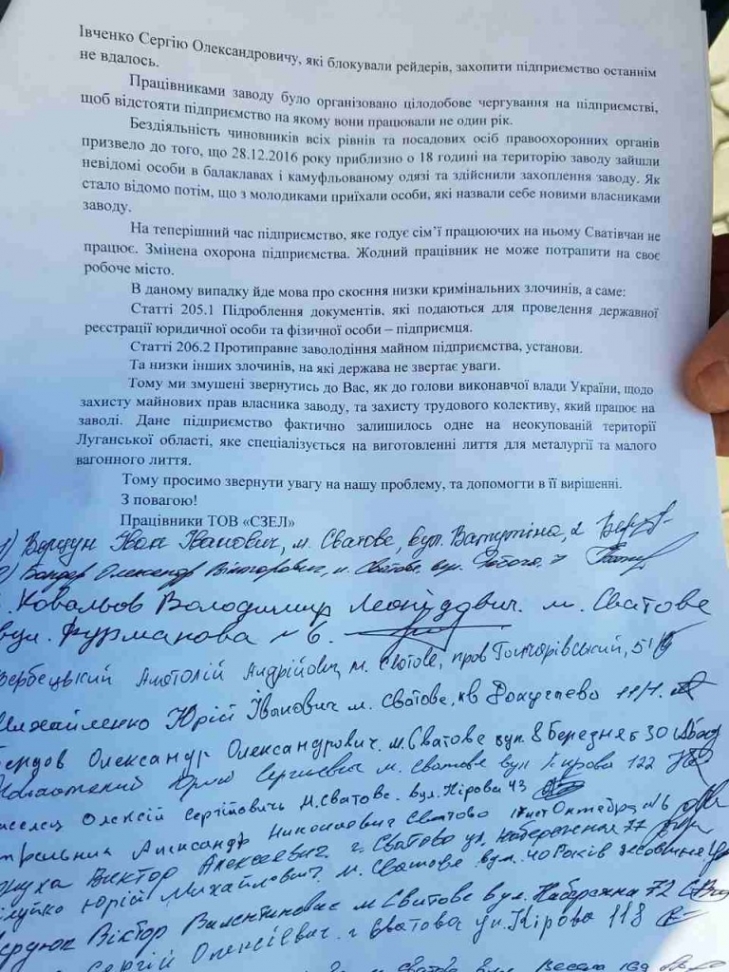 Івченко Сергію Олександровичу, які блокували рейдерів, захопити підприємство останнім
не вдалось.
Працівниками заводу було організовано цілодобове чергування на підприємстві,
щоб відстояти підприємство на якому вони працювали не один рік.
Бездіяльність чиновників всіх рівнів та посадових осіб правоохоронних органів
призвело до того, що 28.12.2016 року приблизно о 18 годині на територію заводу зайшли
невідомі особи в балаклавах і камуфльованому одязі та здійснили захоплення заводу. Як
стало відомо потім, що з молодиками приїхали особи, які назвали себе новими власниками
заводу.
На теперішний час підприємство, яке годує сім’ї працюючих на ньому Сватівчан не
працює. Змінена охорона підприємства. Жодний працівник не може потрапити на своє
робоче місто.
В даному випадку йде мова про скоєння низки кримінальних злочинів, а саме:
Статті 205.1 Підроблення документів, які подаються для проведення державної
реєстрації юридичної особи та фізичної особи – підприємця.
Статті 206.2 Протиправне заволодіння майном підприємства, установи.
Та низки інших злочинів, на які держава не звертає уваги.
Тому ми змушені звернутись до Вас, як до голови виконавчої влади України, щодо
захисту майнових прав власника заводу, та захисту трудового колективу, який працює на
заводі. Дане підприємство фактично залишилось одне на неокупованій території
Луганської області, яке спеціалізується на виготовленні лиття для металургії та малого
вагонного лиття.
Тому просимо звернути увагу на нашу проблему, та допомогти в її вирішенні.
З повагою!
Працівники ТОВ «СЗЕЛ»
Іван Іванович, м. Сватове, вул. Ватутіна, 2
Олександр м. Сватове, вул.
Ковальов Володимир Леонідович. м. Сватове
вул. Фурманова № 6.
Анатолій Андрійович, м. Сватове, пров Гончарівський,
Михайленко Юрій Іванович м. Сватове, кв Докучаево
Олександр Олександрович. м. Сватове вул. 8 Березня 30
м. Сватове вул Кирова 122
Олексій Сергійович м. Сватове. вул. Кірова 43
Александр Николаевич Сватово Октября № 6
Виктор Алексеевич. г. Сватово ул. Набережная 77
Юрій Михайлович. м. Сватове вул. 40 Років
Віктор Валентинович м Сватове вул. Набережна 72
Сергій Олексієвич. г Сватова ул. Кірова 118